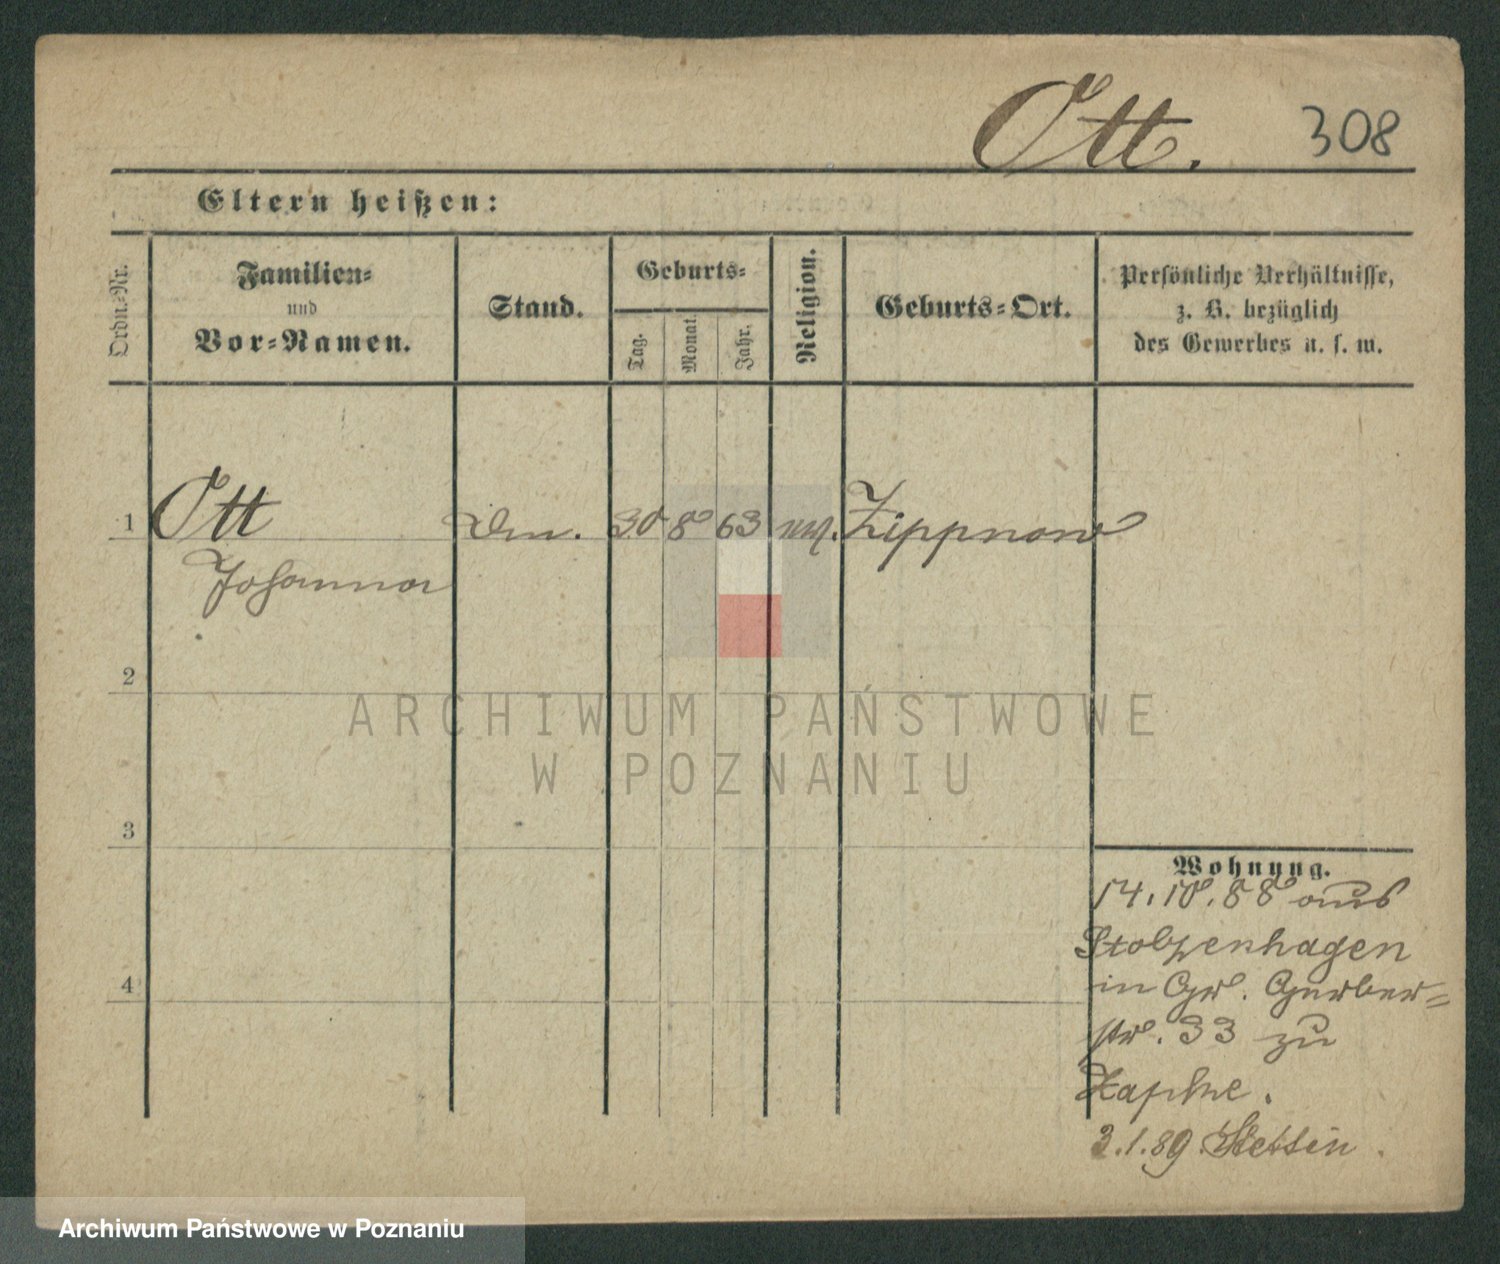 Ott. 308
Eltern heißen:
Ordn.-Nr.
Familien-
und
Vor-Namen.
Stand.
Geburts-
Tag.
Monat.
Jahr.
Religion.
Geburts-Ort.
Persönliche Verhältnisse,
z. B. bezüglich
des Gewerbes u. s. w.
1 Ott 30 8 63 Zippnow
Johanna
2
3
4
Wohnung.
14.10.88 aus
Stolzenhagen
in Gr. Gerber-
str. 33 zu
3.1.89 Stettin.
ARCHIWUM PAŃSTWOWE
W POZNANIU
Archiwum Państwowe w Poznaniu